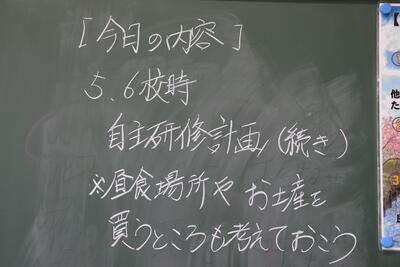 [今日の内容]
5、6校時
自主研修計画(続き)
※昼食場所や お土産を
買うところも考えておこう
他
た